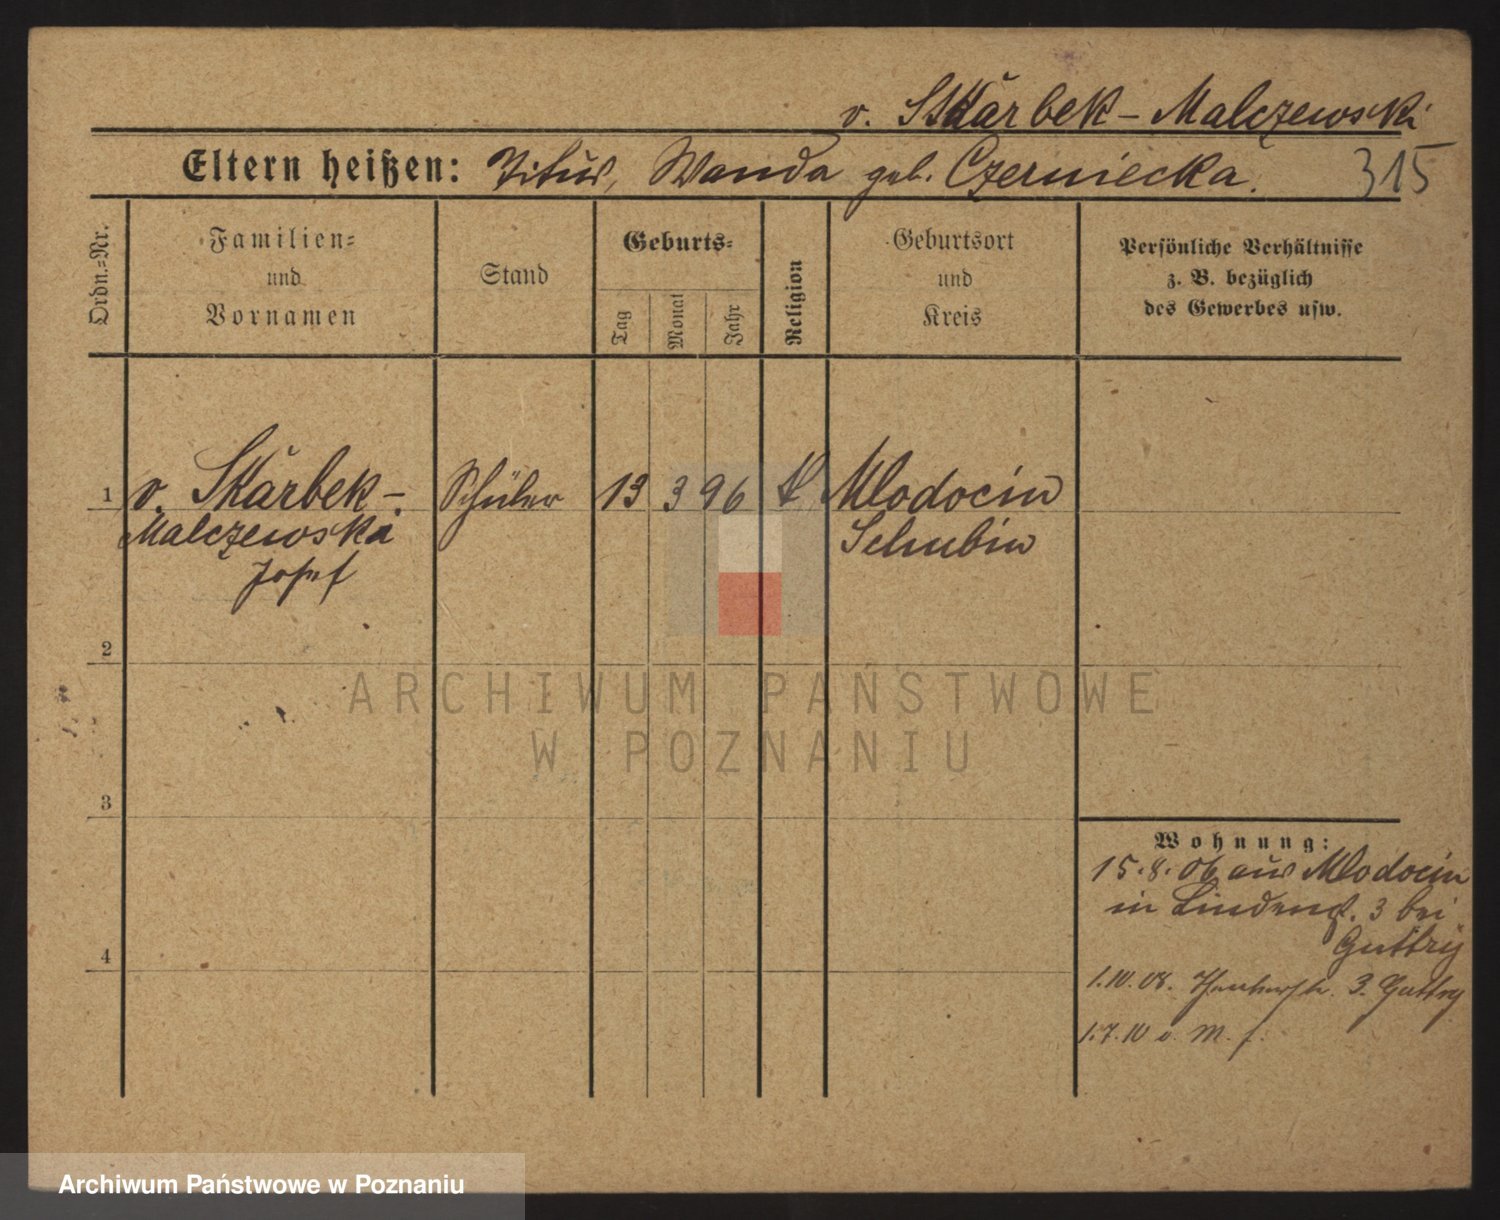 v. Skarbek-Malczewski
Eltern heißen: Titus, Wanda geb. Czerniecka. 315
Ordn.=Nr.
Familien=
und
Vornamen
Stand
Geburts=
Tag
Monat
Jahr
Religion
Geburtsort
und
Kreis
Persönliche Verhältnisse
z. B. bezüglich
des Gewerbes usw.
1 v. Skarbek- Schüler 13 3 96 k Mlodocin
Malczewska Schubin
Josef
2
ARCHIWUM PAŃSTWOWE
W POZNANIU
3
Wohnung:
15.8.06 aus Mlodocin
in Lindenst. 3 bei
Guttry
4
1.10.08. 3. Guttry
1.7.10 M.
Archiwum Państwowe w Poznaniu